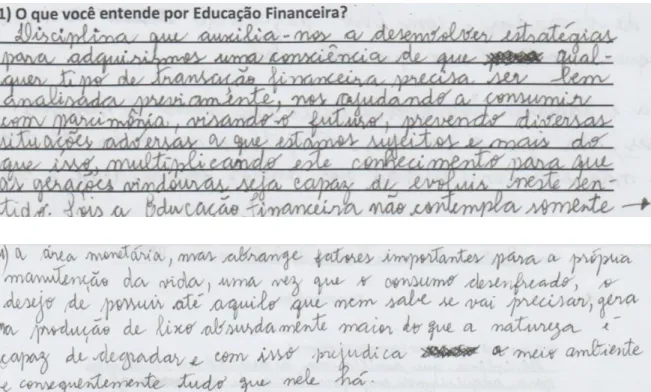 1) O que você entende por Educação Financeira?
Disciplina que auxilia-nos a desenvolver estratégias
para adquirirmos uma consciência de que qual-
quer tipo de transação financeira precisa ser bem
analisada previamente, nos ajudando a consumir
com parcimônia, visando o futuro, prevendo diversas
situações adversas a que estamos sujeitos e mais do
que isso, multiplicando este conhecimento para que
as gerações vindouras seja capaz de evoluir neste sen-
tido. Pois a Educação Financeira não contempla somente →
1) a área monetária, mas abrange fatores importantes para a própria
manutenção da vida, uma vez que o consumo desenfreado, o
desejo de possuir até aquilo que nem sabe se vai precisar, gera
na produção de lixo absurdamente maior do que a natureza é
capaz de degradar e com isso prejudica o meio ambiente
e consequentemente tudo que nele há.